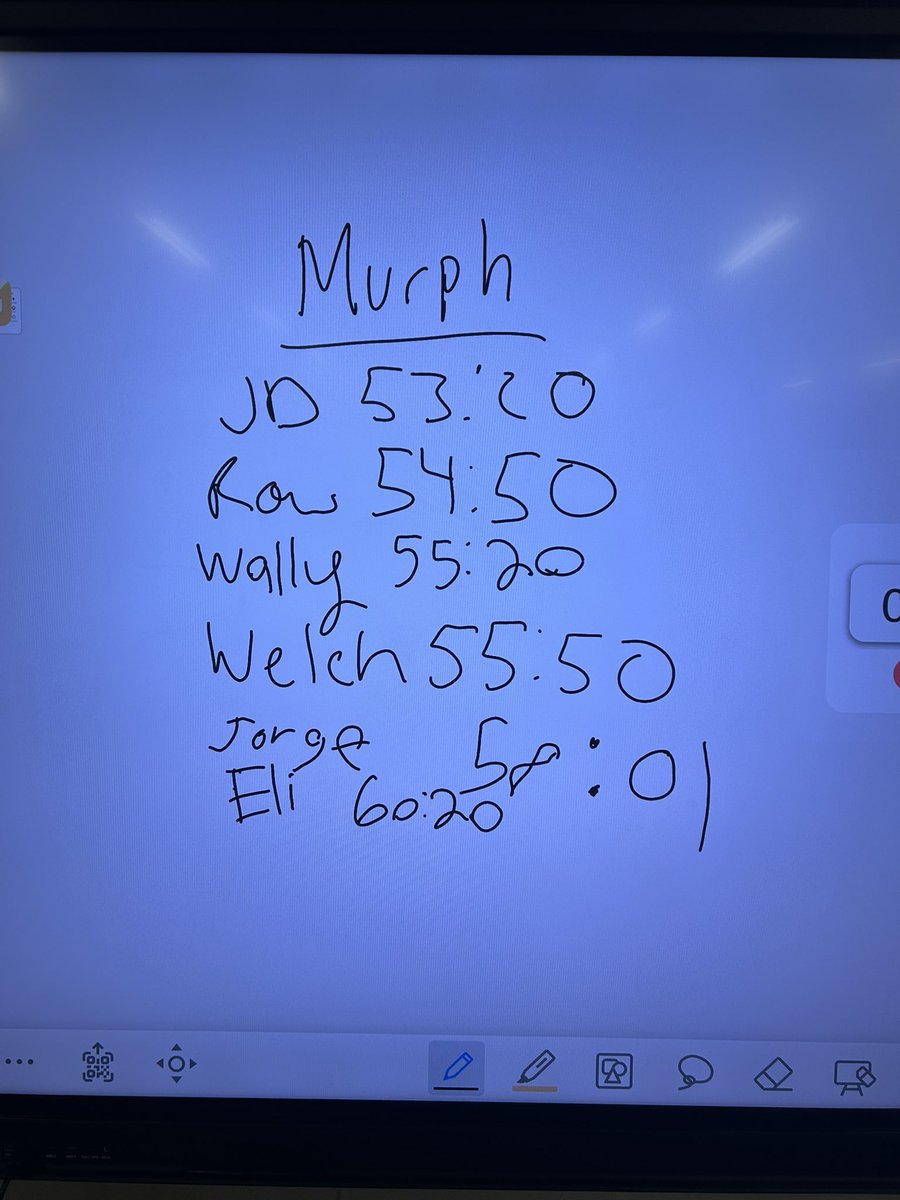 Murph
JD 53:20
Row 54:50
Wally 55:20
Welch 55:50
Jorge 58:01
Eli 60:20